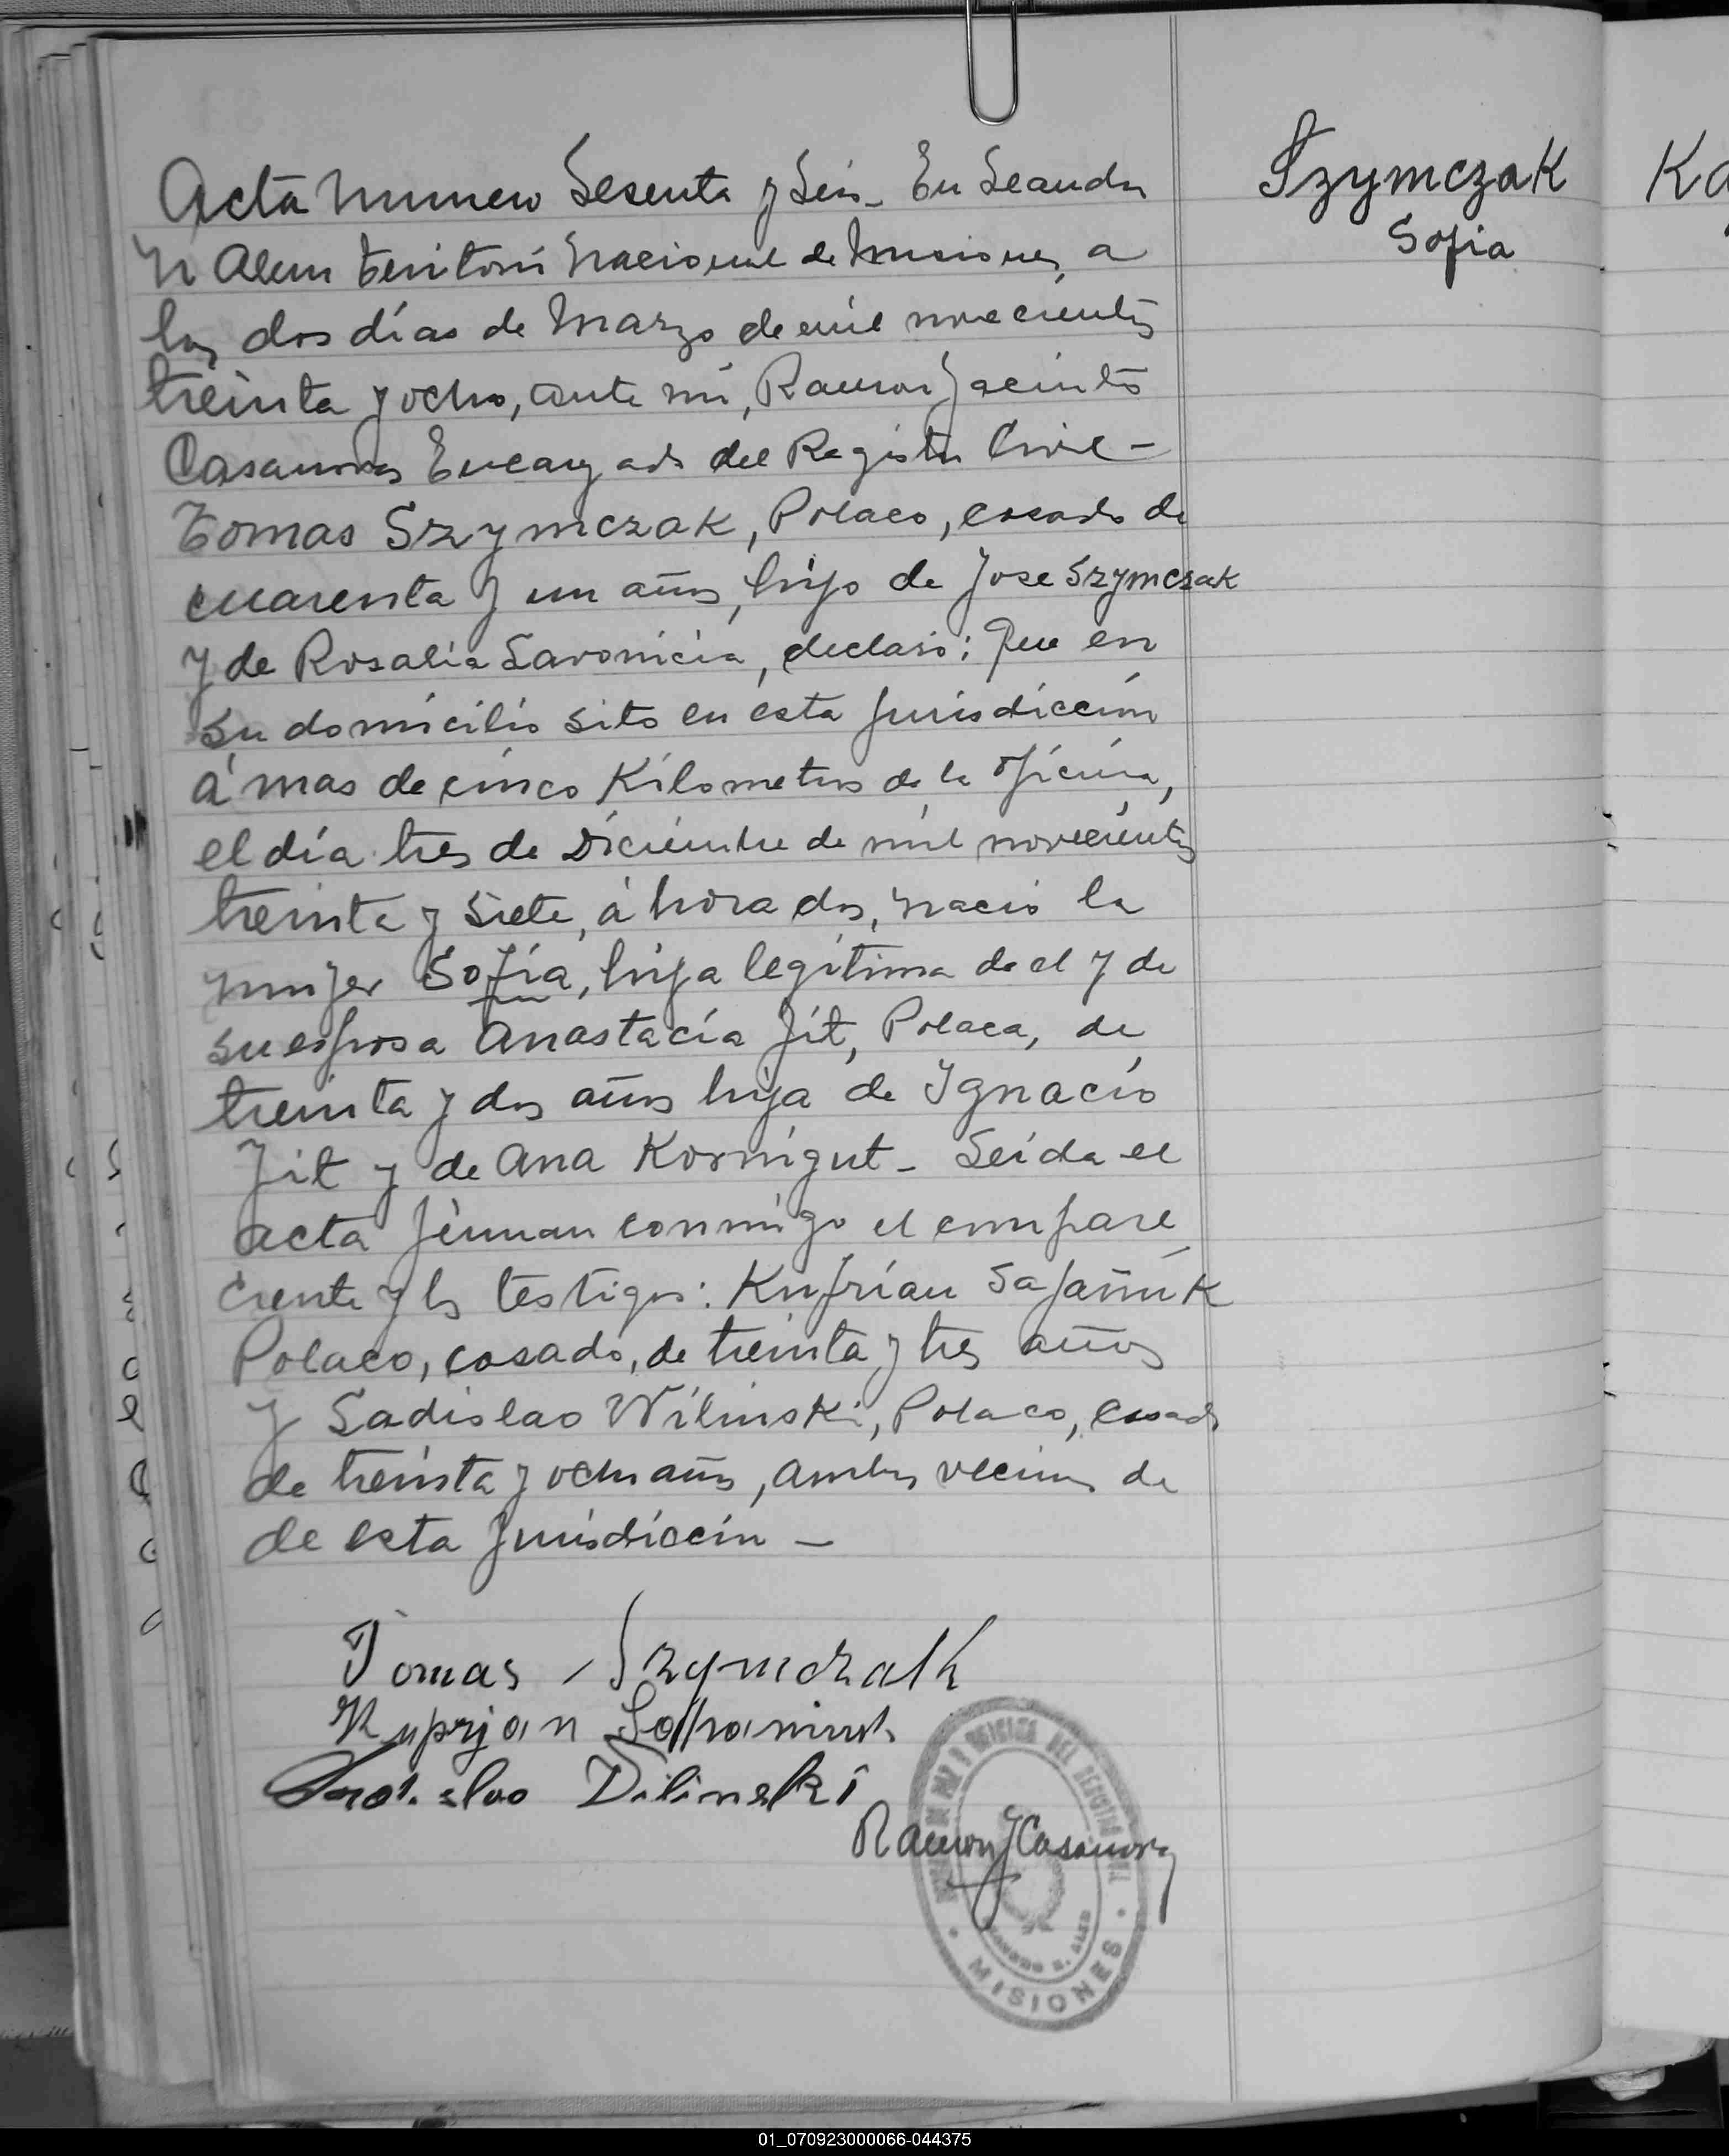 Acta Numero Sesenta y Seis_ En Leandro
N Alem Territorio Nacional de Misiones, a
los dos días de Marzo de mil novecientos
treinta y ocho, ante mi, Ramon Jacinto
Casanova Encargado del Registro Civil –
Tomas Szymczak, Polaco, casado de
cuarenta y un años, hijo de Jose Szymczak
y de Rosalia Savonicia, declaró: Que en
su domicilio sito en esta jurisdicción
á mas de cinco Kilometros de la oficina,
el día tres de Diciembre de mil novecientos
treinta y siete, á hora dos, nació la
mujer Sofía, hija legítima de el y de
su esposa Anastacia Jit, Polaca, de
treinta y dos años hija de Ignacio
Jit y de Ana Kornigut_ Leida el
acta firman conmigo el compare
ciente y los testigos: Kuprían Sapañuk
Polaco, casado, de treinta y tres años
y Ladislao Wilinski, Polaco, casado
de treinta y ocho años, ambos vecinos de
de esta jurisdicción –
Szymczak
Sofia
Ka
Tomas Szymczak
Kuprjan
Dilinski
Ramon J Casanova
MISIONES
01_070923000066-044375